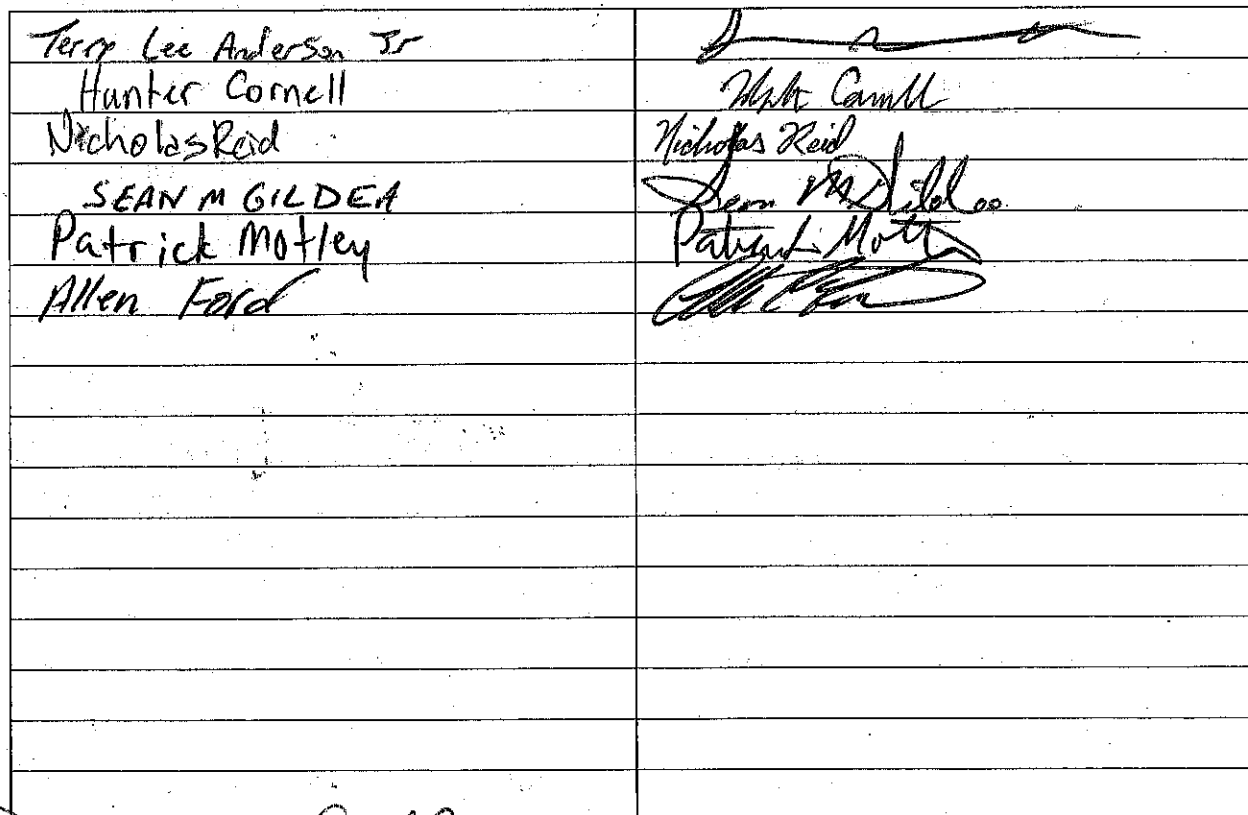 Terry Lee Anderson Jr
Hunter Cornell
Nicholas Reid Nicholas Reid
SEAN M GILDEA Sean M Gildea
Patrick Motley Patrick Motley
Allen Ford